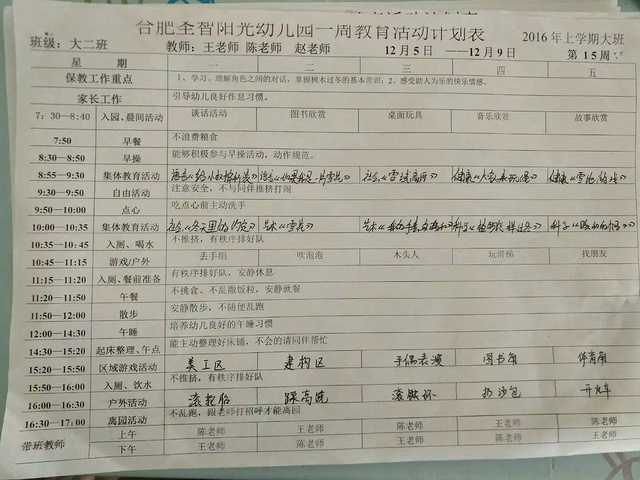 合肥全智阳光幼儿园一周教育活动计划表
班级：大二班 教师：王老师 陈老师 赵老师 12月5日 ——12月9日 2016年上学期大班
第15周
星 期 一 二 三 四 五
保教工作重点 1、学习、理解角色之间的对话，掌握树木过冬的基本常识；2、感受助人为乐的快乐情感。
家长工作 引导幼儿良好作息习惯。
7：30—8:40 入园、晨间活动 谈话活动 图书欣赏 桌面玩具 音乐欣赏 故事欣赏
7:50 早餐 不浪费粮食
8:30—8:50 早操 能够积极参与早操活动，动作规范。
8:55—9:30 集体教育活动 健康《大家来玩绳》
9:30—9:50 自由活动 注意安全，不与同伴推挤打闹
9:50—10:00 点心 吃点心前主动洗手
10:00—10:35 集体教育活动 社会《冬天里的 艺术《雪花》 艺术 科学 科学
10:35—10:45 入厕、喝水 不推挤，有秩序排好队
10:45—11:15 游戏/户外 丢手绢 吹泡泡 木头人 玩滑梯 找朋友
11:15—11:20 入厕、餐前准备 有秩序排好队，安静休息
11:20—11:50 午餐 不挑食、不乱撒饭粒，安静就餐
11:50—12:00 散步 安静散步，不随便乱跑
12:00—14:30 午睡 培养幼儿良好的午睡习惯
14:30—15:20 起床整理、午点 能主动整理好床铺，不会的请同伴帮忙
15:20—15:50 区域游戏活动 美工区 建构区 手偶表演 图书角 体育角
15:50—16:00 入厕、饮水 不推挤，有秩序排好队
16:00—16:30 户外活动 滚轮胎 踩高跷 滚铁环 扔沙包 开火车
16:30—17:00 离园活动 不乱跑，跟老师打招呼才能离园
带班教师 上午 陈老师 王老师 陈老师 王老师 陈老师
下午 王老师 陈老师 王老师 陈老师 王老师